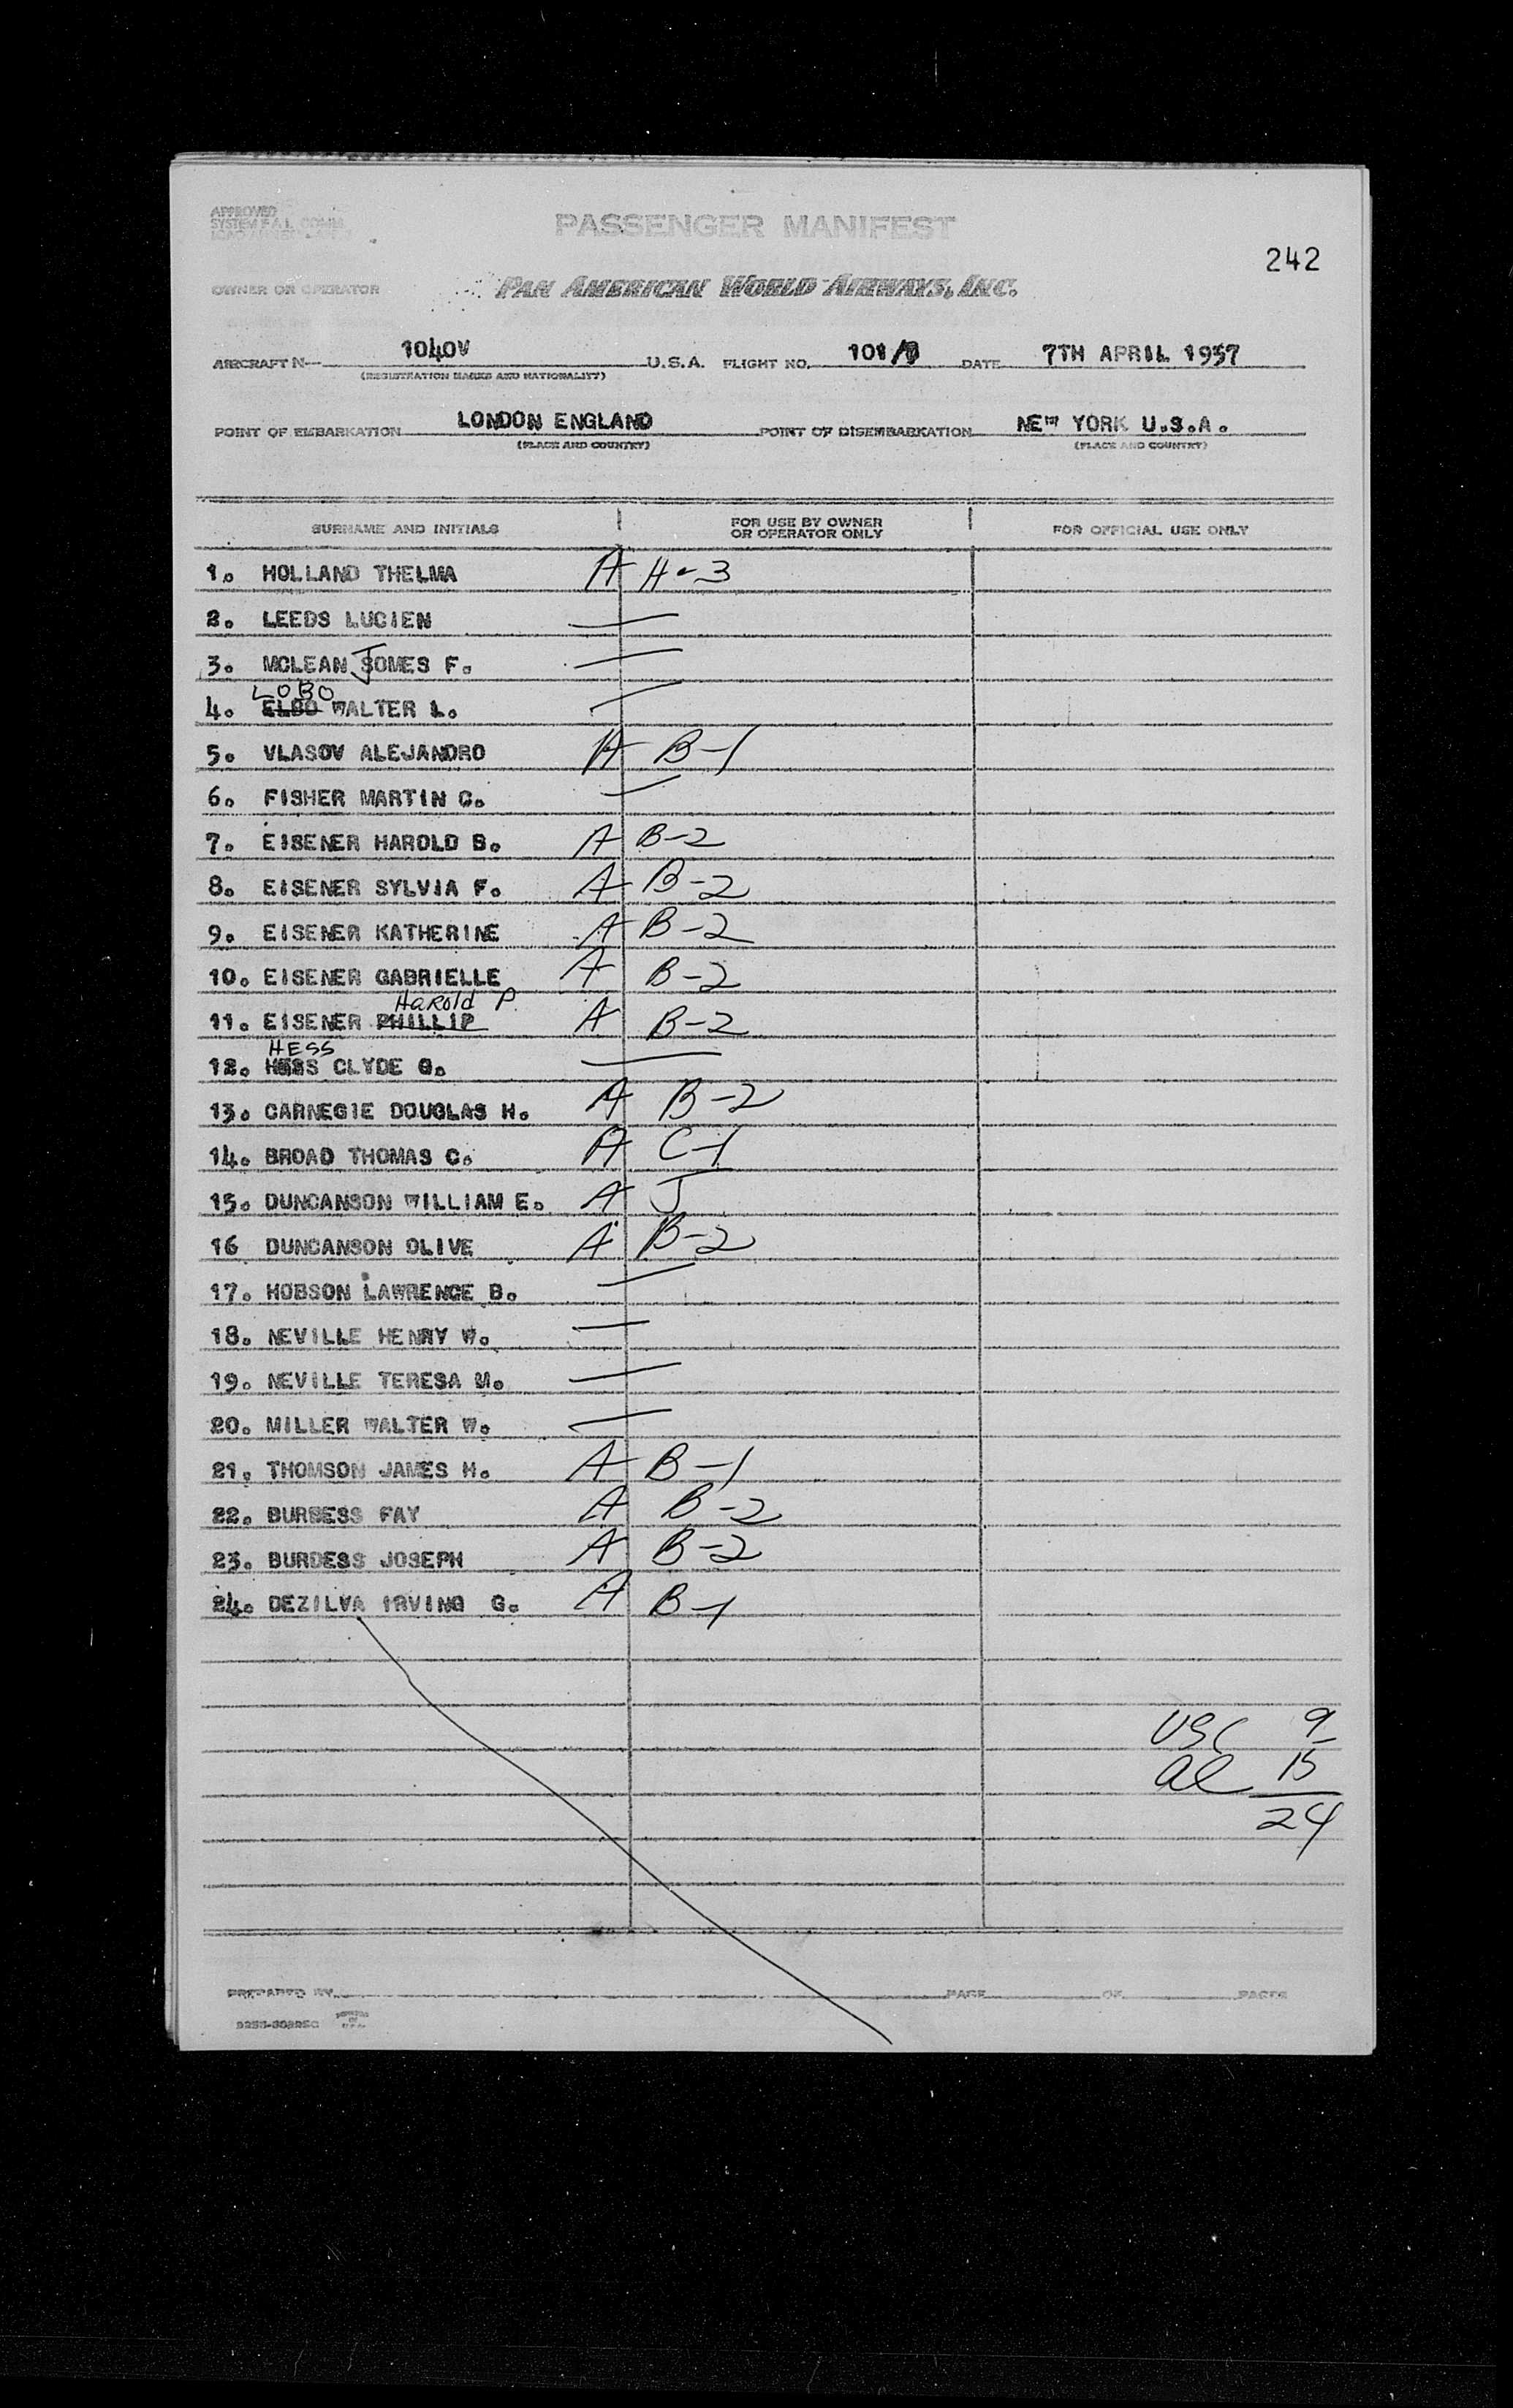 APPROVED
SYSTEM F.A.L. COMM.
PASSENGER MANIFEST
242
OWNER OR OPERATOR PAN AMERICAN WORLD AIRWAYS, INC.
AIRCRAFT N— 1040V U.S.A. FLIGHT NO. 101/ DATE 7TH APRIL 1957
(REGISTRATION MARKS AND NATIONALITY)
POINT OF EMBARKATION LONDON ENGLAND POINT OF DISEMBARKATION NEW YORK U.S.A.
(PLACE AND COUNTRY) (PLACE AND COUNTRY)
SURNAME AND INITIALS FOR USE BY OWNER OR OPERATOR ONLY FOR OFFICIAL USE ONLY
1. HOLLAND THELMA A H-3
2. LEEDS LUCIEN —
3. MCLEAN JOMES F. —
LOBO
4. ELBO WALTER L. —
5. VLASOV ALEJANDRO A B-1
6. FISHER MARTIN C. —
7. EISENER HAROLD B. A B-2
8. EISENER SYLVIA F. A B-2
9. EISENER KATHERINE A B-2
10. EISENER GABRIELLE A B-2
Harold P.
11. EISENER PHILLIP A B-2
HESS
12. HESS CLYDE G. —
13. CARNEGIE DOUGLAS H. A B-2
14. BROAD THOMAS C. A C-1
15. DUNCANSON WILLIAM E. A J
16 DUNCANSON OLIVE A B-2
17. HOBSON LAWRENCE B. —
18. NEVILLE HENRY W. —
19. NEVILLE TERESA M. —
20. MILLER WALTER W. —
21. THOMSON JAMES H. A B-1
22. BURDESS FAY A B-2
23. BURDESS JOSEPH A B-2
24. DEZILVA IRVING G. A B-1
USC 9
al 15
24
PREPARED BY PAGE OF PAGES